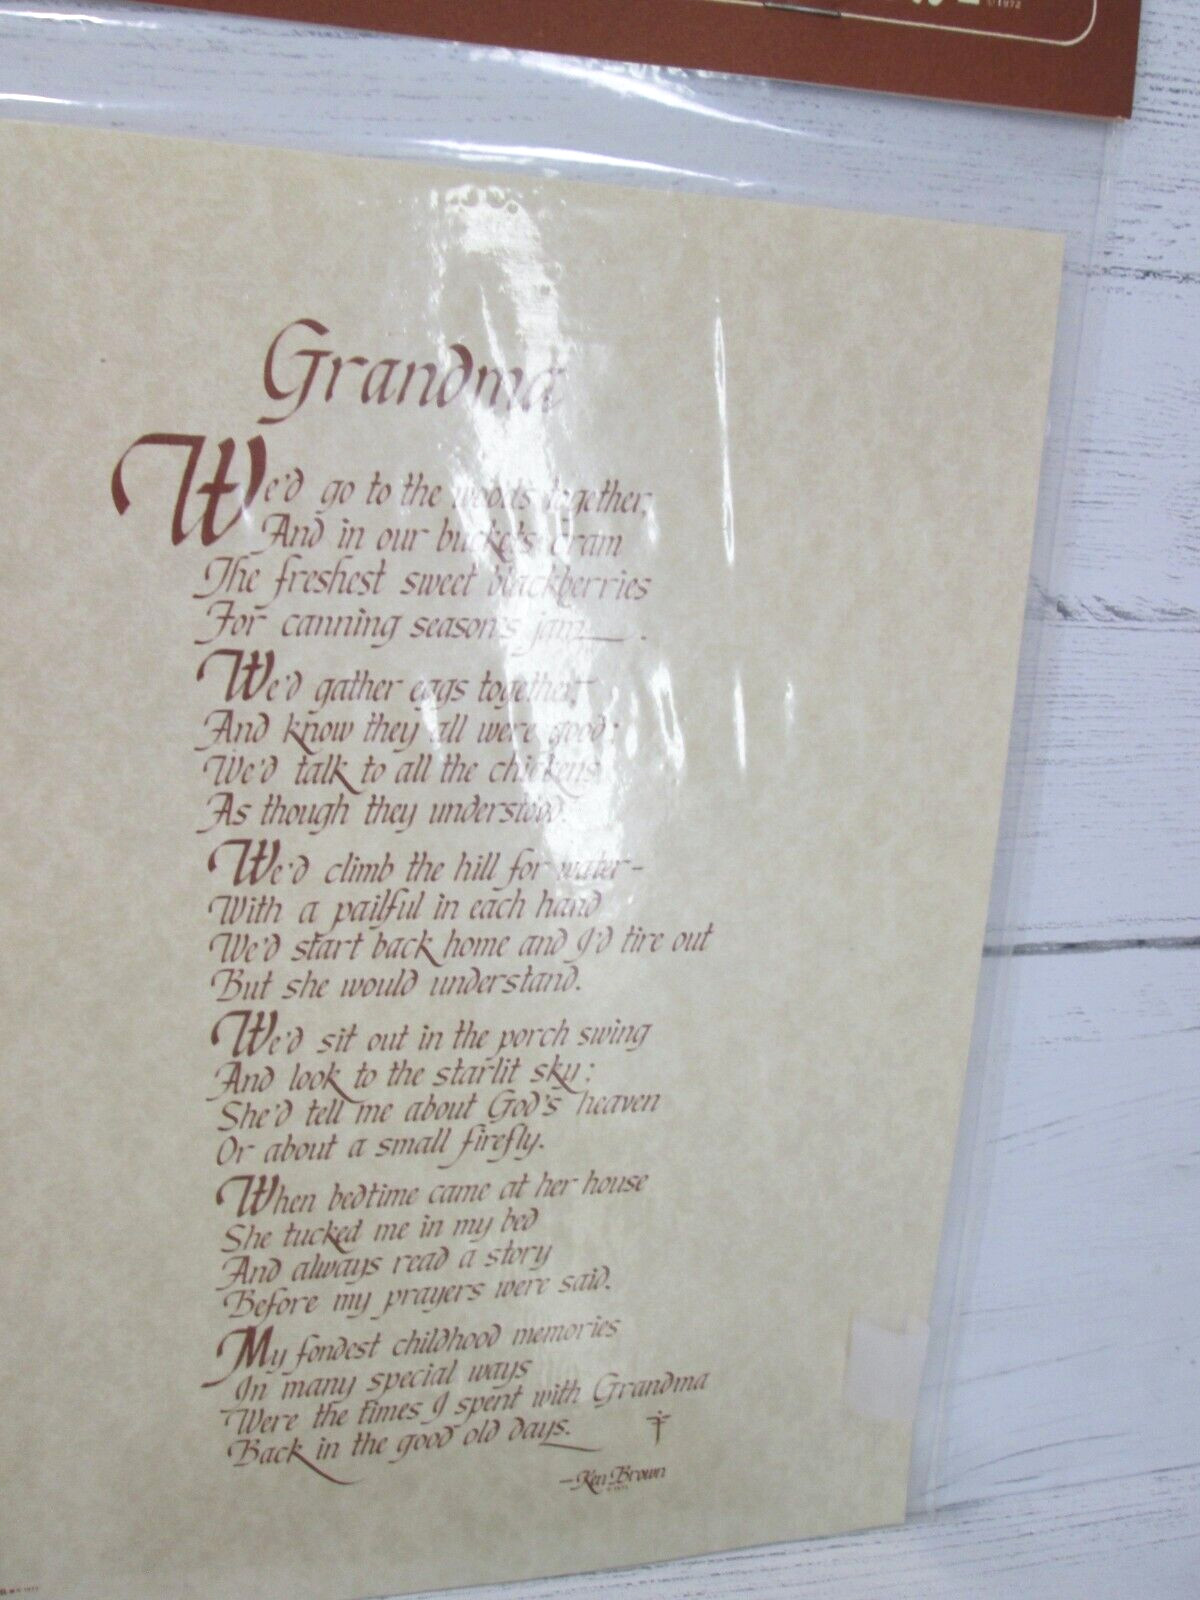 ©1972
Grandma
We'd go to the woods together,
And in our buckets cram
The freshest sweet blackberries
For canning season's jam.
We'd gather eggs together,
And know they all were good;
We'd talk to all the chickens
As though they understood.
We'd climb the hill for water-
With a pailful in each hand
We'd start back home and I'd tire out
But she would understand.
We'd sit out in the porch swing
And look to the starlit sky;
She'd tell me about God's heaven
Or about a small firefly.
When bedtime came at her house
She tucked me in my bed
And always read a story
Before my prayers were said.
My fondest childhood memories
In many special ways
Were the times I spent with Grandma
Back in the good old days.
—Ken Brown